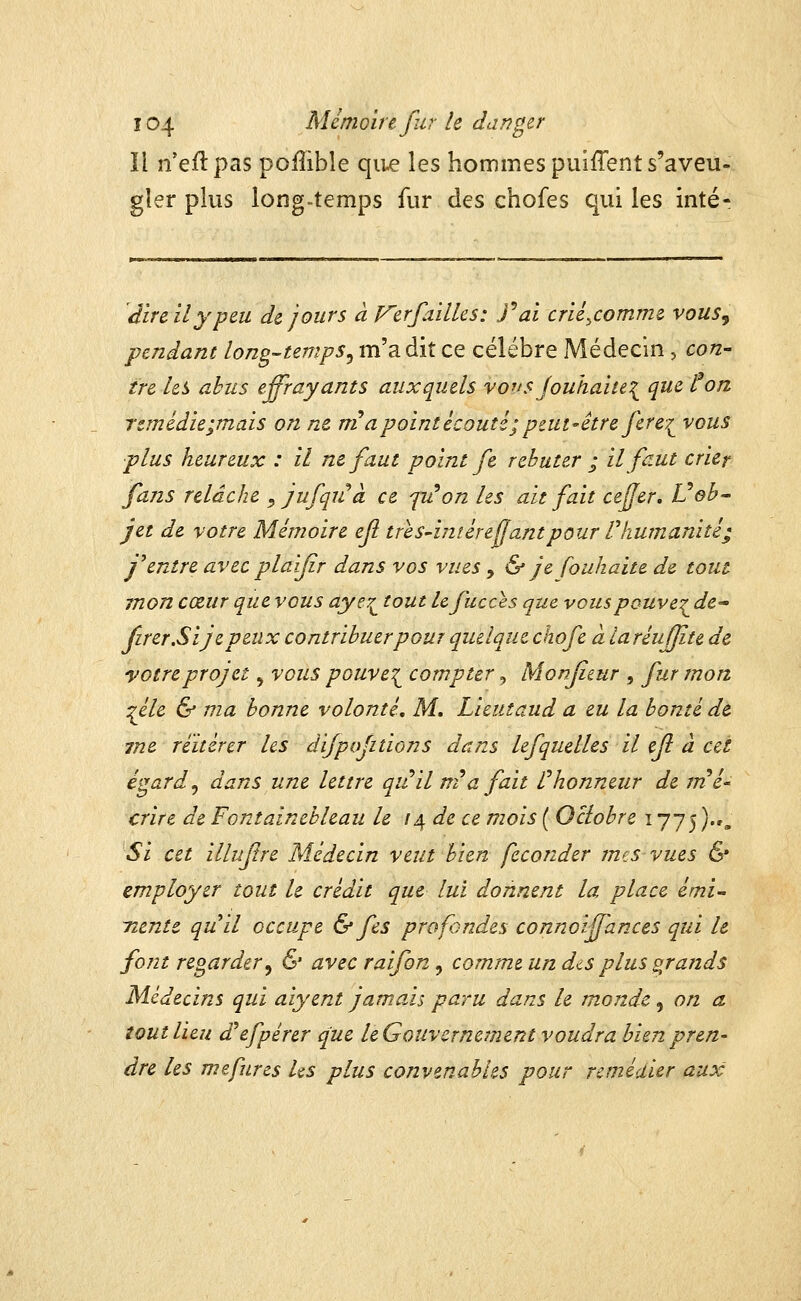 104 Mémoire ſur le danger
Il n'eſt pas poſſible que les hommes puiſſent s'aveu-
gler plus long-temps ſur des choſes qui les inté-
dire il y peu de jours à Verſailles: J'ai crié, comme vous,
pendant long-temps, m'a dit ce célébre Médecin, con-
tre les abus effrayants auxquels vous ſouhaitez que l'on
remédie; mais on ne m'a point écouté; peut-être ſerez vous
plus heureux : il ne faut point ſe rebuter ; il faut crier
ſans relâche, juſqu'à ce qu'on les ait fait ceſſer. L'ob-
jet de votre Mémoire eſt très-intéreſſant pour l'humanité;
j'entre avec plaiſir dans vos vues, & je ſouhaite de tout
mon cœur que vous ayez tout le ſuccès que vous pouvez de-
ſirer. Si je peux contribuer pour quelque choſe à la réuſſite de
votre projet, vous pouvez compter, Monſieur, ſur mon
zéle & ma bonne volonté. M. Lieutaud a eu la bonté de
me réïtérer les diſpoſitions dans leſquelles il eſt à cet
égard, dans une lettre qu'il m'a fait l'honneur de m'é-
crire de Fontainebleau le 14 de ce mois ( Octobre 1775 )...
Si cet illuſtre Médecin veut bien ſeconder mes vues &
employer tout le crédit que lui donnent la place émi-
nente qu'il occupe & ſes profondes connoiſſances qui le
font regarder, & avec raiſon, comme un des plus grands
Médecins qui aiyent jamais paru dans le monde, on a
tout lieu d'eſpérer que le Gouvernement voudra bien pren-
dre les meſures les plus convenables pour remédier aux